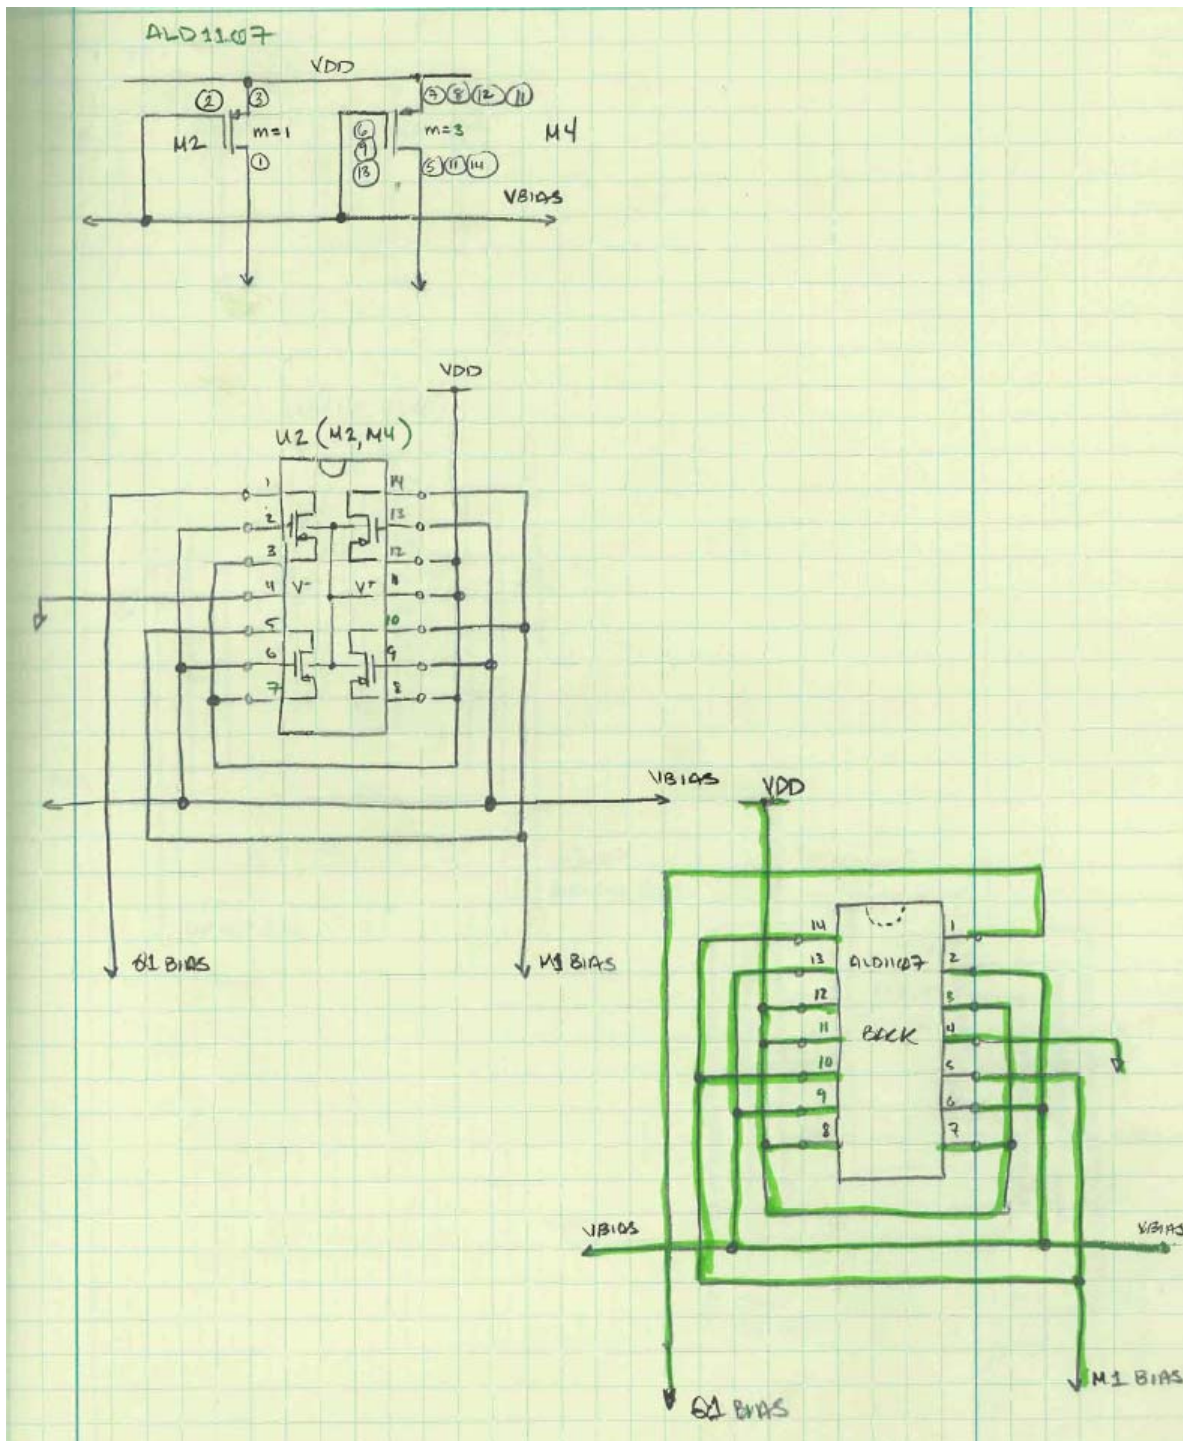 ALD1107
VDD
2 3 7 8 12 11
M2 m=1 6 m=3 M4
9
1 13 5 11 14
VBIAS
VDD
U2 (M2, M4)
1 14
2 13
3 12
4 V- V+ 11
5 10
6 9
7 8
VBIAS
Q1 BIAS M1 BIAS
VDD
14 1
13 ALD1107 2
12 3
11 BACK 4
10 5
9 6
8 7
VBIAS VBIAS
M1 BIAS
Q1 BIAS